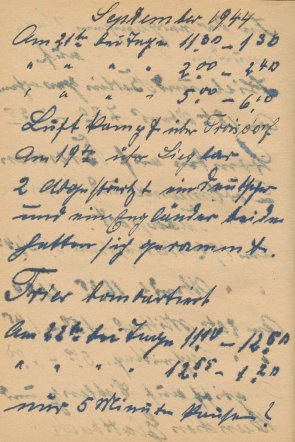 September 1944
Am 21ten bei Tage 11³⁰ – 1³⁰
" " " " 2⁰⁰ – 2⁴⁰
" " " " 5⁰⁰ – 6¹⁰
Luftkampf über Troisdorf
Am 19ten über Sieglar
2 Abgestürzt ein Deutscher
und ein Engländer beide
hatten sich gerammt.
Trier bombartiert
Am 22ten bei Tage 11⁰⁰ – 12⁵⁰
" " " " 12⁵⁵ – 1²⁰
nur 5 Minuten Pause!